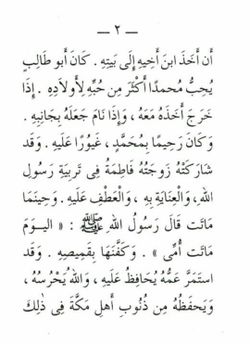 — ٢ —
أَن أَخَذَ ابنَ أَخِيهِ إِلَى بَيتِهِ . كَانَ أَبو طَالِبٍ
يُحِبُّ مُحمدًا أَكثَرَ مِن حُبِّهِ لِأَولَادِهِ . إِذَا
خَرَجَ أَخَذَهُ مَعَهُ ، وَإِذَا نَامَ جَعَلَهُ بِجَانِبِهِ .
وَكَانَ رَحِيمًا بِمُحَمَّدٍ ، غَيُورًا عَلَيهِ . وَقَد
شَارَكَتْهُ زَوجَتُهُ فَاطِمَةُ فِى تَربِيَةِ رَسُولِ
اللهِ ، وَالعِنَايَةِ بِهِ ، وَالعَطْفِ عَلَيهِ . وَحِينَمَا
مَاتَت قَالَ رَسُولُ اللهِ ﷺ : « اليَومَ
مَاتَت أُمِّى » . وَكَفَّنَهَا بِقَمِيصِهِ . وَقَد
استَمَرَّ عَمُّهُ يُحَافِظُ عَلَيهِ ، وَاللهُ يَحْرُسُهُ ،
وَيَحفَظُهُ مِن ذُنُوبِ أَهلِ مَكَّةَ فِى ذٰلِكَ